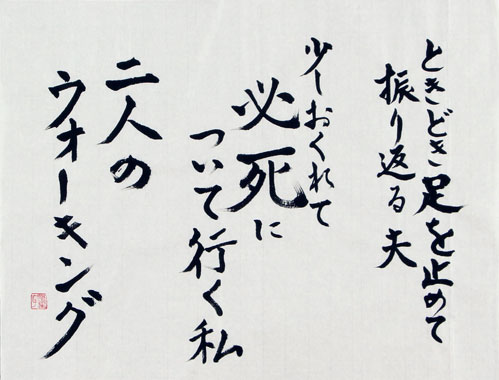 ときどき足を止めて
振り返る夫
少しおくれて
必死に
ついて行く私
二人の
ウォーキング